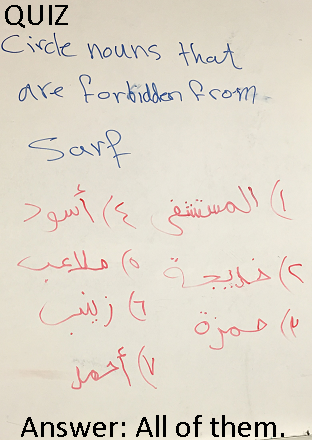 QUIZ
Circle nouns that
are forbidden from
Sarf
١) المستشفى
٢) خديجة
٣) حمزة
٤) أسود
٥) ملاعب
٦) زينب
٧) أحمد
Answer: All of them.